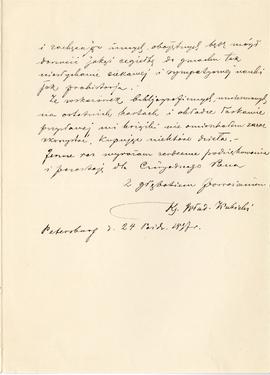 i zachęcając innych, obojętnych będę mógł
dorzucić jakąś cegiełkę do gmachu tak
niesłychanie ciekawej i sympatycznej nauki
jak prahistorja.
Ze wskazówek bibljograficznych umieszczonych
na ostatnich kartach i okładce łaskawie
przysłanej mi książki nie omieszkałem zaraz
skorzystać, kupując niektóre dzieła.
Jeszcze raz wyrażam serdeczne podziękowanie
i pozostaję dla Czcigodnego Pana
Z głębokiem poważaniem
Ks. Wład.
Petersburg d. 24 1897 r.